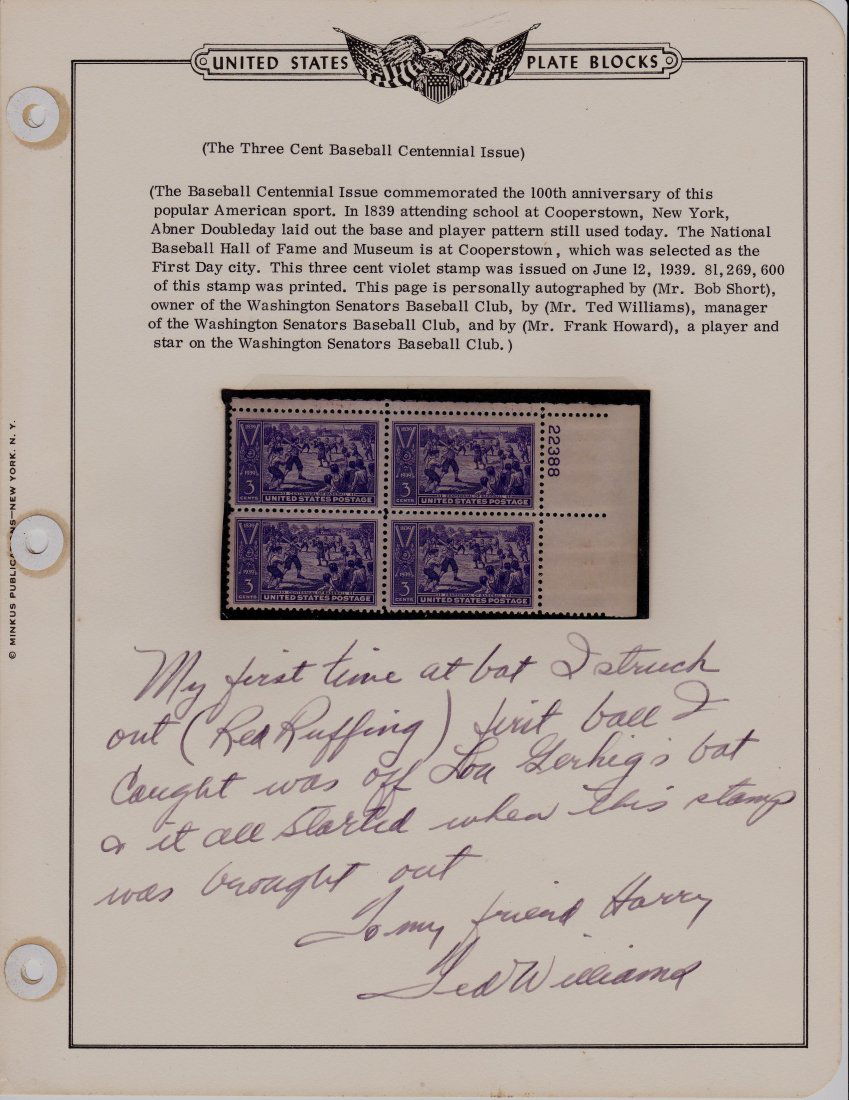 UNITED STATES PLATE BLOCKS
(The Three Cent Baseball Centennial Issue)
(The Baseball Centennial Issue commemorated the 100th anniversary of this
popular American sport. In 1839 attending school at Cooperstown, New York,
Abner Doubleday laid out the base and player pattern still used today. The National
Baseball Hall of Fame and Museum is at Cooperstown, which was selected as the
First Day city. This three cent violet stamp was issued on June 12, 1939. 81,269,600
of this stamp was printed. This page is personally autographed by (Mr. Bob Short),
owner of the Washington Senators Baseball Club, by (Mr. Ted Williams), manager
of the Washington Senators Baseball Club, and by (Mr. Frank Howard), a player and
star on the Washington Senators Baseball Club.)
1839
1939
3 CENTS
CENTENNIAL OF BASEBALL
UNITED STATES POSTAGE
1839
1939
3 CENTS
CENTENNIAL OF BASEBALL
UNITED STATES POSTAGE
22388
1839
1939
3 CENTS
CENTENNIAL OF BASEBALL
UNITED STATES POSTAGE
1839
1939
3 CENTS
CENTENNIAL OF BASEBALL
UNITED STATES POSTAGE
My first time at bat I struck
out (Red Ruffing) first ball I
caught was off Lou Gerhig's bat
& it all started when this stamp
was brought out
To my friend Harry
Ted Williams
© MINKUS PUBLIC NS—NEW YORK, N. Y.